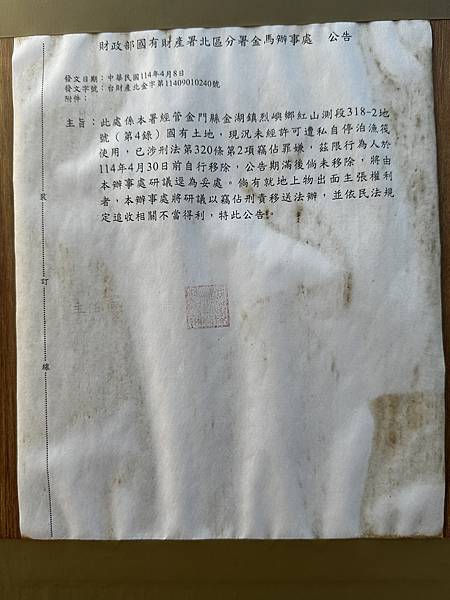 財政部國有財產署北區分署金馬辦事處　公告
發文日期：中華民國114年4月8日
發文字號：台財產北金字第11409010240號
附件：
主旨：此處係本署經管金門縣金湖鎮烈嶼鄉紅山測段318-2地
號（第4錄）國有土地，現況未經許可遭私自停泊漁筏
使用，已涉刑法第320條第2項竊佔罪嫌，茲限行為人於
114年4月30日前自行移除，公告期滿後倘未移除，將由
本辦事處研議逕為妥處。倘有就地上物出面主張權利
者，本辦事處將研議以竊佔刑責移送法辦，並依民法規
定追收相關不當得利，特此公告。
裝
訂
線
主任